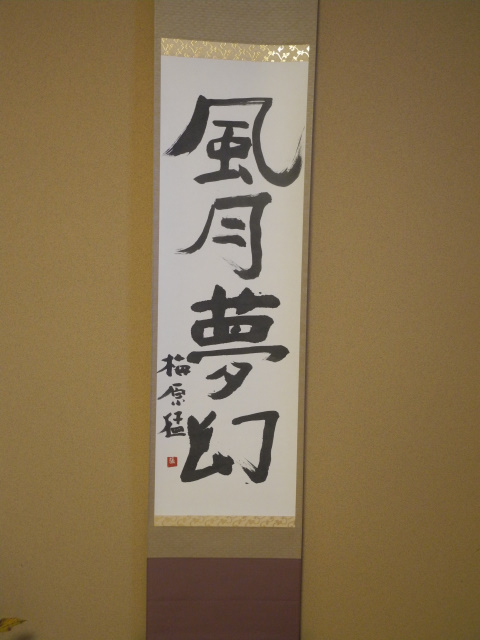 風月夢幻
梅原猛